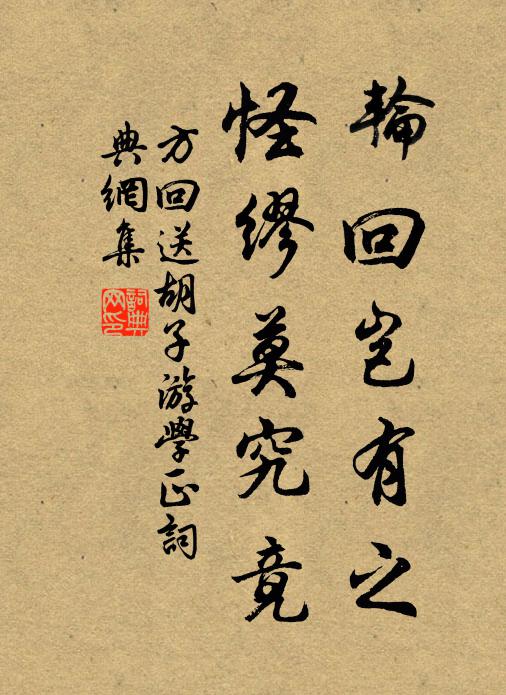 輪回岂有之
怪繆莫究竟
方回送胡子游學正詞
典網集
詞典
网印